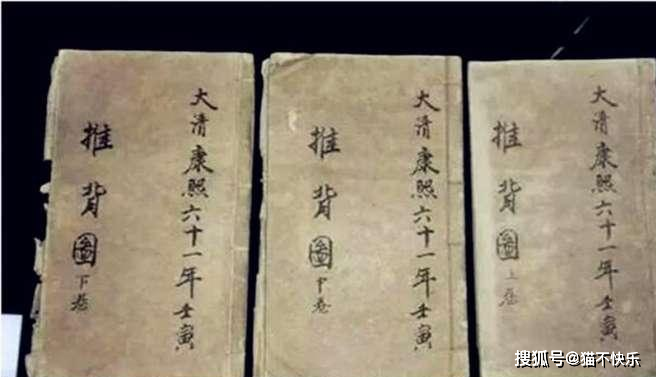 大清康熙六十一年壬寅
推背圖
上卷
大清康熙六十一年壬寅
推背圖
中卷
大清康熙六十一年壬寅
推背圖
下卷
搜狐号@猫不快乐